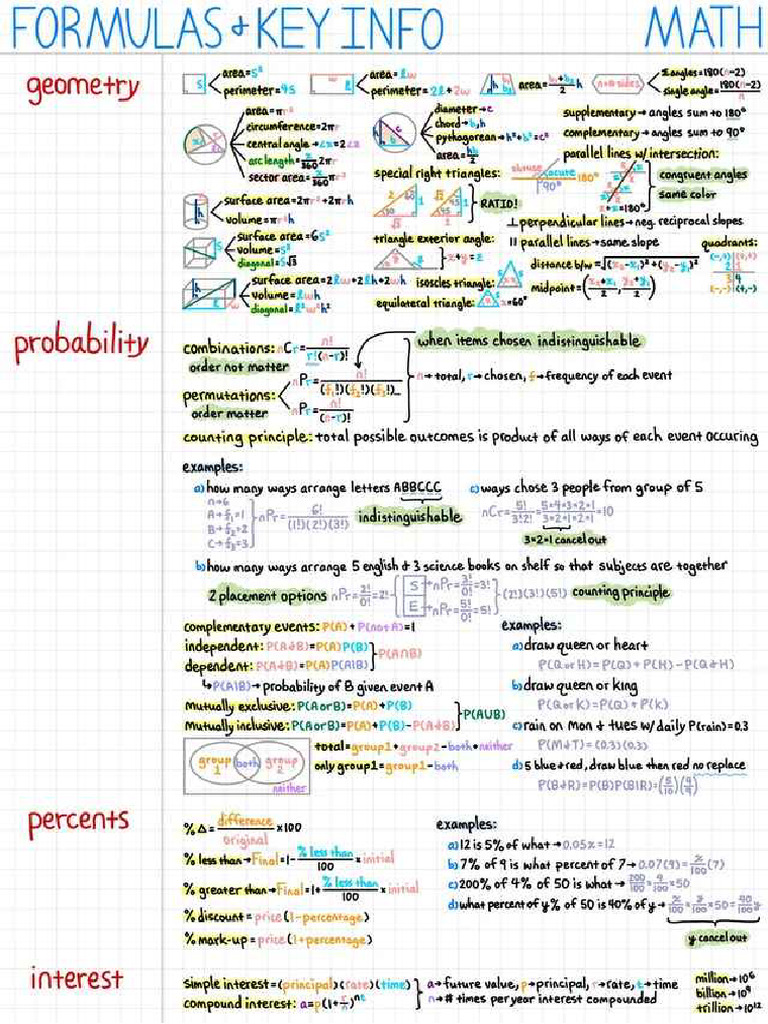 FORMULAS + KEY INFO MATH
geometry
s area=s²
perimeter=4s
w l area=lw
perimeter=2l+2w
area=(b₁+b₂)/2 h
n=# sides Σangles=180(n-2)
single angle=180(n-2)/n
area=πr²
circumference=2πr
central angle→
arc length=x/360 2πr
sector area=x/360 πr²
diameter→c
chord→b,h
pythagorean→h²+b²=c²
area=hb/2
supplementary→angles sum to 180°
complementary→angles sum to 90°
parallel lines w/intersection:
congruent angles
same color
=180°
special right triangles:
RATIO!
obtuse acute 180°
90°
⊥perpendicular lines→neg. reciprocal slopes
surface area=2πr²+2πrh
volume=πr²h
surface area=6s²
volume=s³
diagonal=s√3
surface area=2lw+2lh+2wh
volume=lwh
diagonal=l²w²h²
triangle exterior angle:
x+y=z
isoscles triangle:
equilateral triangle: x=60°
|| parallel lines→same slope
quadrants:
(-,+) (+,+)
2 1
3 4
(-,-) (+,-)
distance b/w=√(x₂-x₁)²+(y₂-y₁)²
midpoint=(x₂+x₁/2, y₂+y₁/2)
probability
combinations: nCr=n!/r!(n-r)!
order not matter
when items chosen indistinguishable
nPr=n!/(f₁!)(f₂!)(f₃!)...
permutations:
order matter
nPr=n!/(n-r)!
n→total, r→chosen, f→frequency of each event
counting principle: total possible outcomes is product of all ways of each event occuring
examples:
a) how many ways arrange letters ABBCCC
n→6
A→f₁=1
B→f₂=2
C→f₃=3
nPr=6!/(1!)(2!)(3!) indistinguishable
c) ways chose 3 people from group of 5
nCr=5!/3!2!=5*4*3*2*1/3*2*1*2*1=10
3*2*1 cancel out
b) how many ways arrange 5 english + 3 science books on shelf so that subjects are together
2 placement options nPr=2!/0!=2!
S→nPr=3!/0!=3!
E→nPr=5!/0!=5!
(2!)(3!)(5!) counting principle
complementary events: P(A)+P(not A)=1
independent: P(A&B)=P(A)P(B)
dependent: P(A&B)=P(A)P(A|B)
P(A∩B)
↳P(A|B)→probability of B given event A
mutually exclusive: P(A or B)=P(A)+P(B)
mutually inclusive: P(A or B)=P(A)+P(B)-P(A&B)
P(A∪B)
group 1 both group 2
neither
total=group1+group2-both+neither
only group1=group1-both
examples:
a) draw queen or heart
P(Q or H)=P(Q)+P(H)-P(Q&H)
b) draw queen or king
P(Q or K)=P(Q)+P(K)
c) rain on mon + tues w/daily P(rain)=0.3
P(M&T)=(0.3)(0.3)
d) 5 blue+red, draw blue then red no replace
P(B&R)=P(B)P(B|R)=(5/10)(4/9)
percents
%Δ=difference/original ×100
% less than→Final=1-% less than/100 × initial
% greater than→Final=1+% less than/100 × initial
% discount=price(1-percentage)
% mark-up=price(1+percentage)
examples:
a) 12 is 5% of what→0.05x=12
b) 7% of 9 is what percent of 7→0.07(9)=x/100(7)
c) 200% of 4% of 50 is what→200/100*4/100*50
d) what percent of y% of 50 is 40% of y→x/100*y/100*50=40/100y
y cancel out
interest
simple interest=(principal)(rate)(time)
compound interest: a=p(1+r/n)ⁿᵗ
a→future value, p→principal, r→rate, t→time
n→# times per year interest compounded
million→10⁶
billion→10⁹
trillion→10¹²